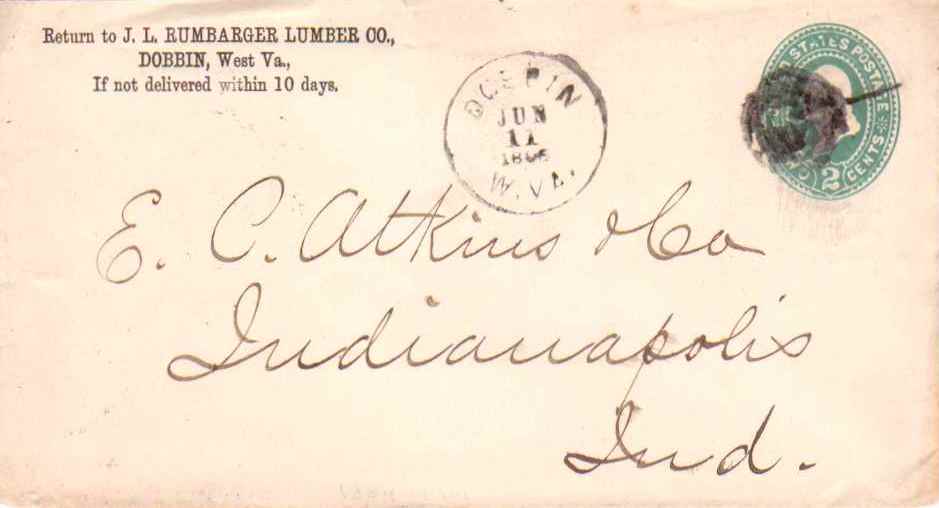 Return to J. L. RUMBARGER LUMBER CO.,
DOBBIN, West Va.,
If not delivered within 10 days.
JUN
11
W. VA.
STATES POSTAGE
2 CENTS
E. C. Atkins & Co
Indianapolis
Ind.